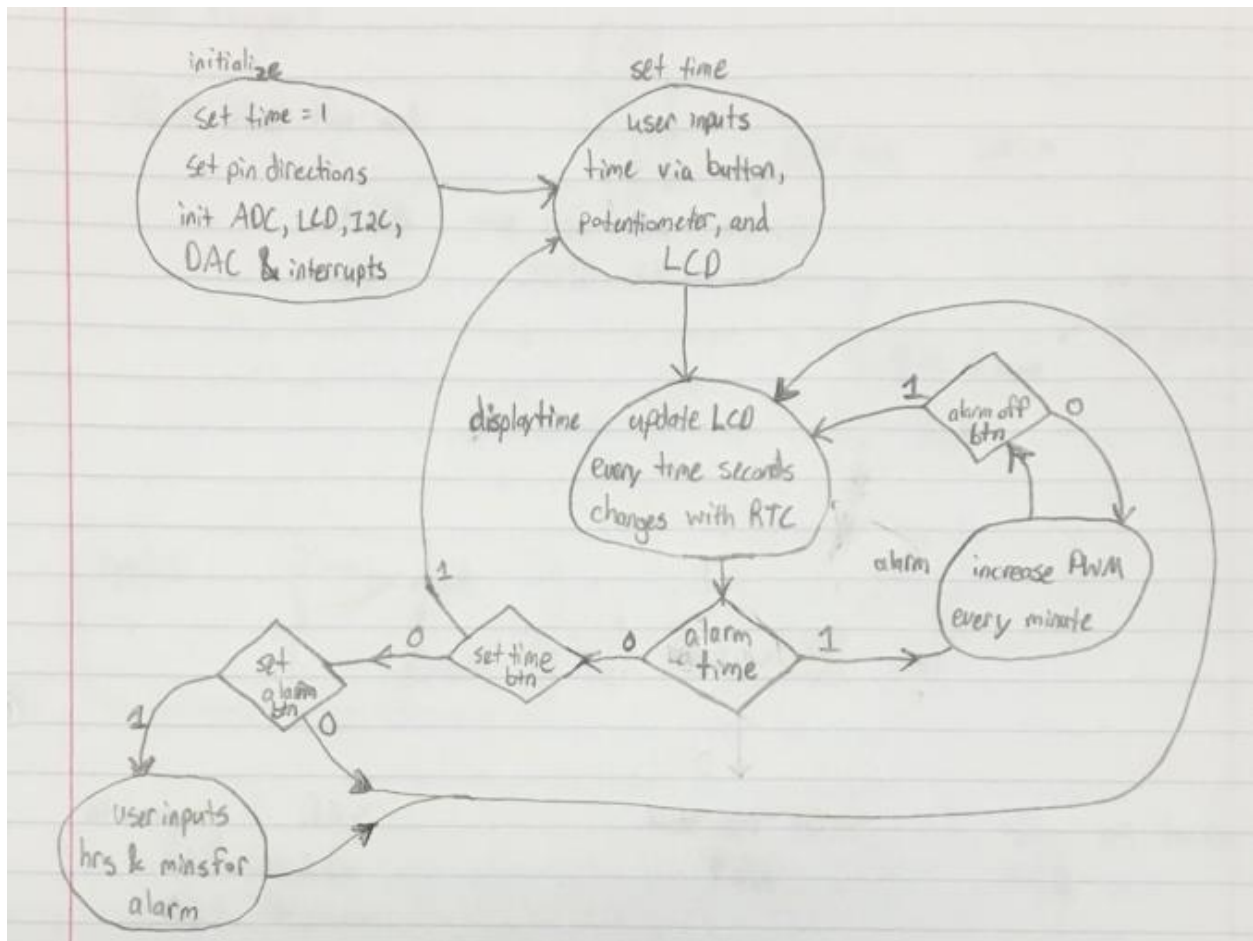 initialize
set time = 1
set pin directions
init ADC, LCD, I2C,
DAC & interrupts
set time
user inputs
time via button,
potentiometer, and
LCD
display time
update LCD
every time seconds
changes with RTC
1
alarm off
btn
0
alarm
increase PWM
every minute
1
alarm
time
0
1
set time
btn
0
set
alarm
btn
1
0
user inputs
hrs & mins for
alarm